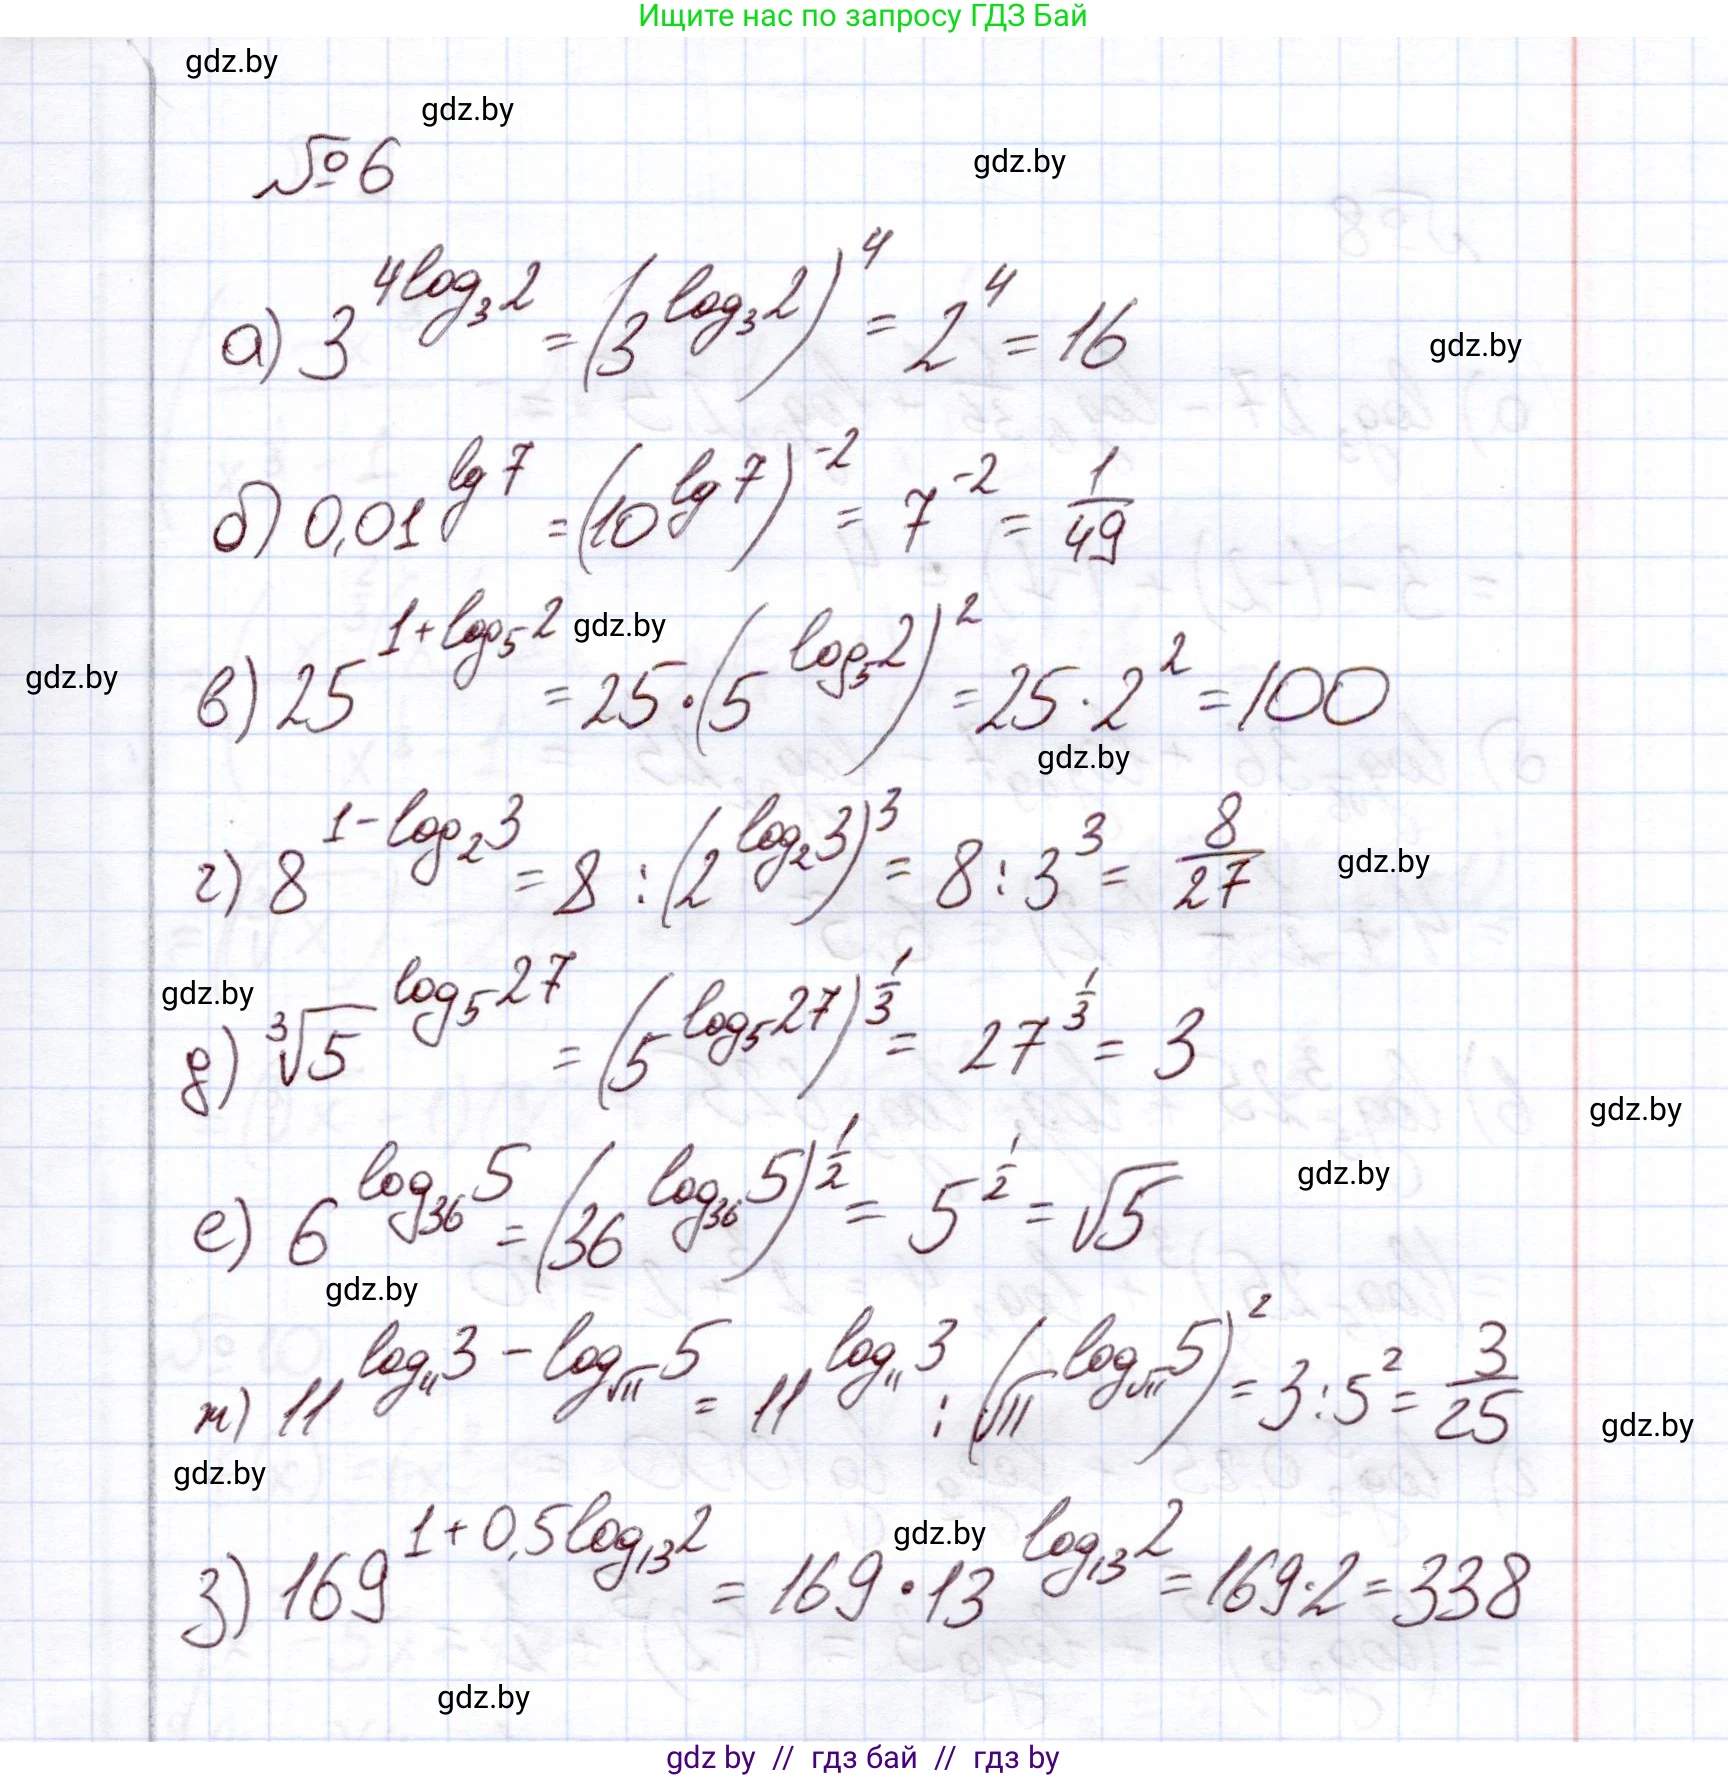 Ищите нас по запросу ГДЗ Бай
gdz.by
gdz.by
№6
gdz.by
а) 3^{4log_3 2} = (3^{log_3 2})^4 = 2^4 = 16
gdz.by
б) 0,01^{lg 7} = (10^{lg 7})^{-2} = 7^{-2} = 1/49
gdz.by
gdz.by
в) 25^{1+log_5 2} = 25·(5^{log_5 2})^2 = 25·2^2 = 100
gdz.by
г) 8^{1-log_2 3} = 8 : (2^{log_2 3})^3 = 8 : 3^3 = 8/27
gdz.by
gdz.by
д) ∛5^{log_5 27} = (5^{log_5 27})^{1/3} = 27^{1/3} = 3
gdz.by
gdz.by
е) 6^{log_36 5} = (36^{log_36 5})^{1/2} = 5^{1/2} = √5
gdz.by
ж) 11^{log_11 3 - log_√11 5} = 11^{log_11 3} : (√11^{log_√11 5})^2 = 3 : 5^2 = 3/25
gdz.by
gdz.by
gdz.by
з) 169^{1+0,5log_13 2} = 169·13^{log_13 2} = 169·2 = 338
gdz.by
gdz by // гдз бай // гдз by